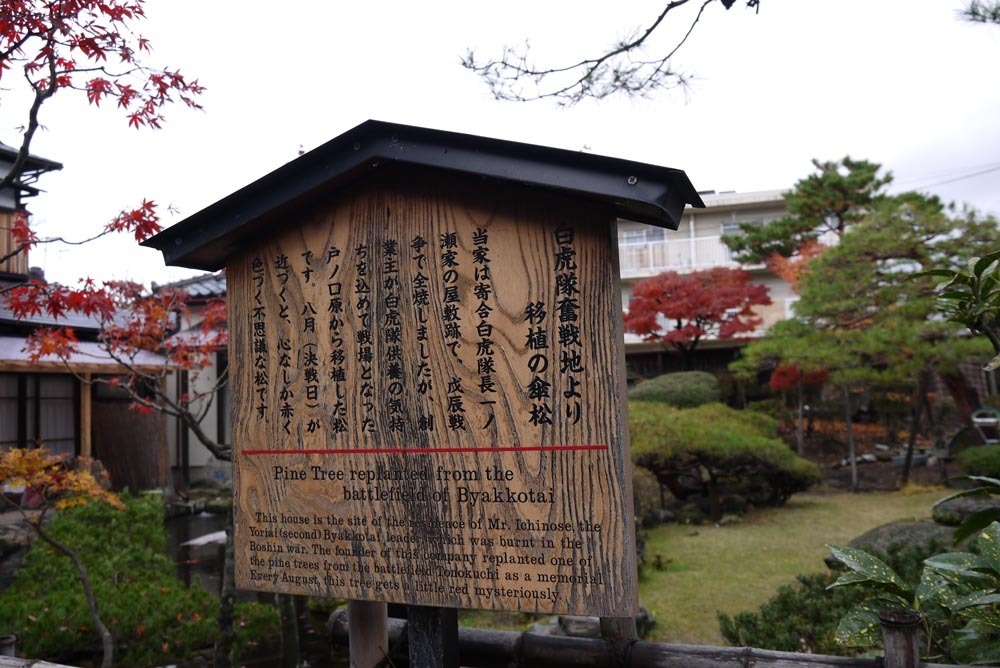 白虎隊奮戦地より
移植の傘松
当家は寄合白虎隊長一ノ
瀬家の屋敷跡で、戊辰戦
争で全焼しましたが、創
業主が白虎隊供養の気持
ちを込めて戦場となった
戸ノ口原から移植した松
です。八月（決戦日）が
近づくと、心なしか赤く
色づく不思議な松です。
Pine Tree replanted from the
battlefield of Byakkotai
This house is the site of the residence of Mr. Ichinose, the
Yoriai (second) Byakkotai leader, which was burnt in the
Boshin war. The founder of this company replanted one of
the pine trees from the battlefield Tonokuchi as a memorial.
Every August, this tree gets a little red mysteriously.